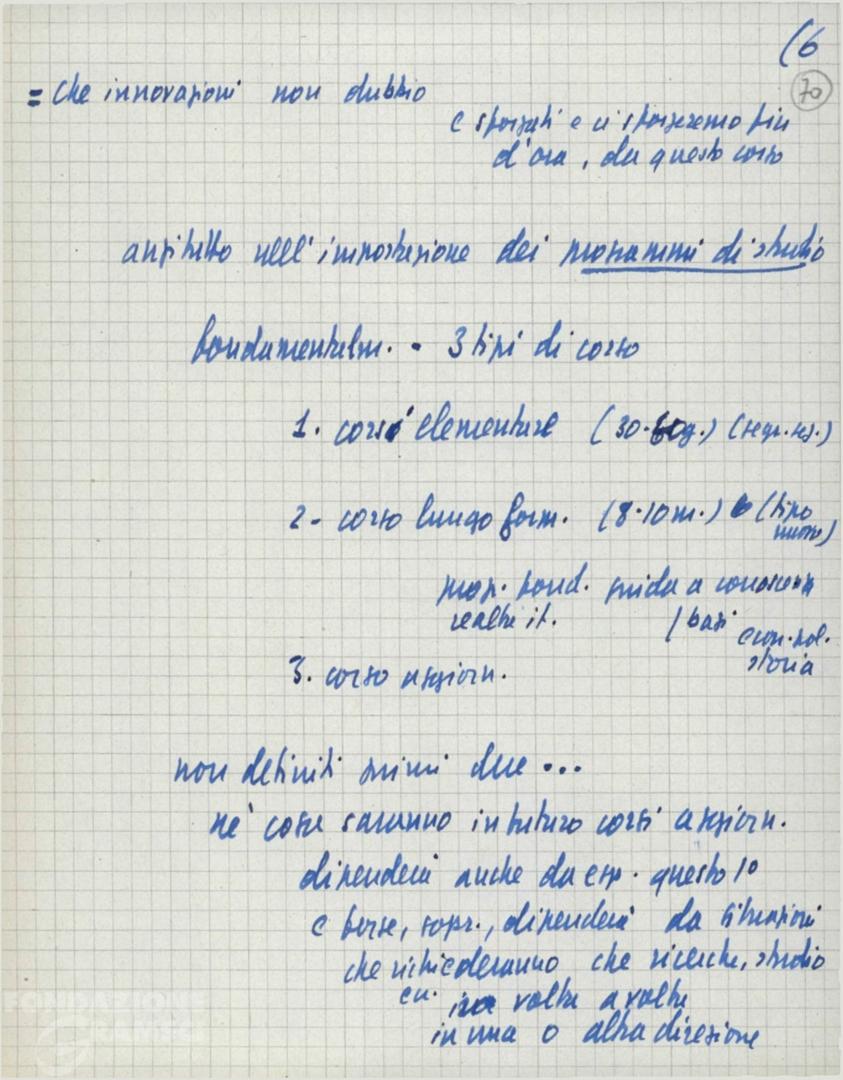 (6
70
= che innovazioni non dubbio
e sforzati e ci sforzeremo fin
d'ora, da questo corso
anzitutto nell'impostazione dei programmi di studio
fondamentalm. - 3 tipi di corso
1. corsi elementare (30-60g.) (segr. sez.)
2- corso lungo form. (8-10 m.) (tipo
nuovo)
progr. fond. guida a conoscenza
realtà it. / basi econ. pol.
storia
3. corso aggiorn.
non definiti primi due ...
né cosa saranno in futuro corsi aggiorn.
dipenderà anche da esp. questo 1º
e forse, sopr., dipenderà da situazioni
che richiederanno che ricerche, studio
ecc. volta a volta
in una o altra direzione
FONDAZIONE
GRAMSCI